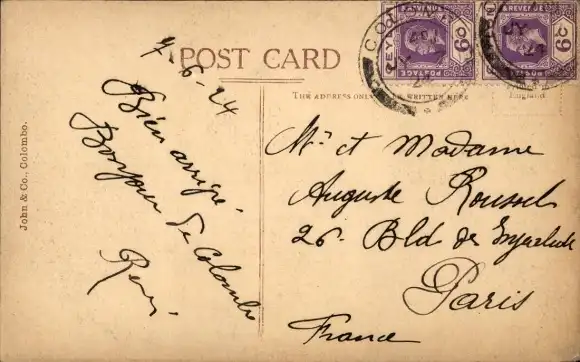 POST CARD
THE ADDRESS ONLY BE WRITTEN HERE
England
John & Co., Colombo.
7-6-24
Bien arrivé.
Bonjour de Colombo
René
Mr et Madame
Auguste Roussel
26. Bld de
Paris
France
& REVENUE
CEYLON
POSTAGE
6c
& REVENUE
POSTAGE
6c